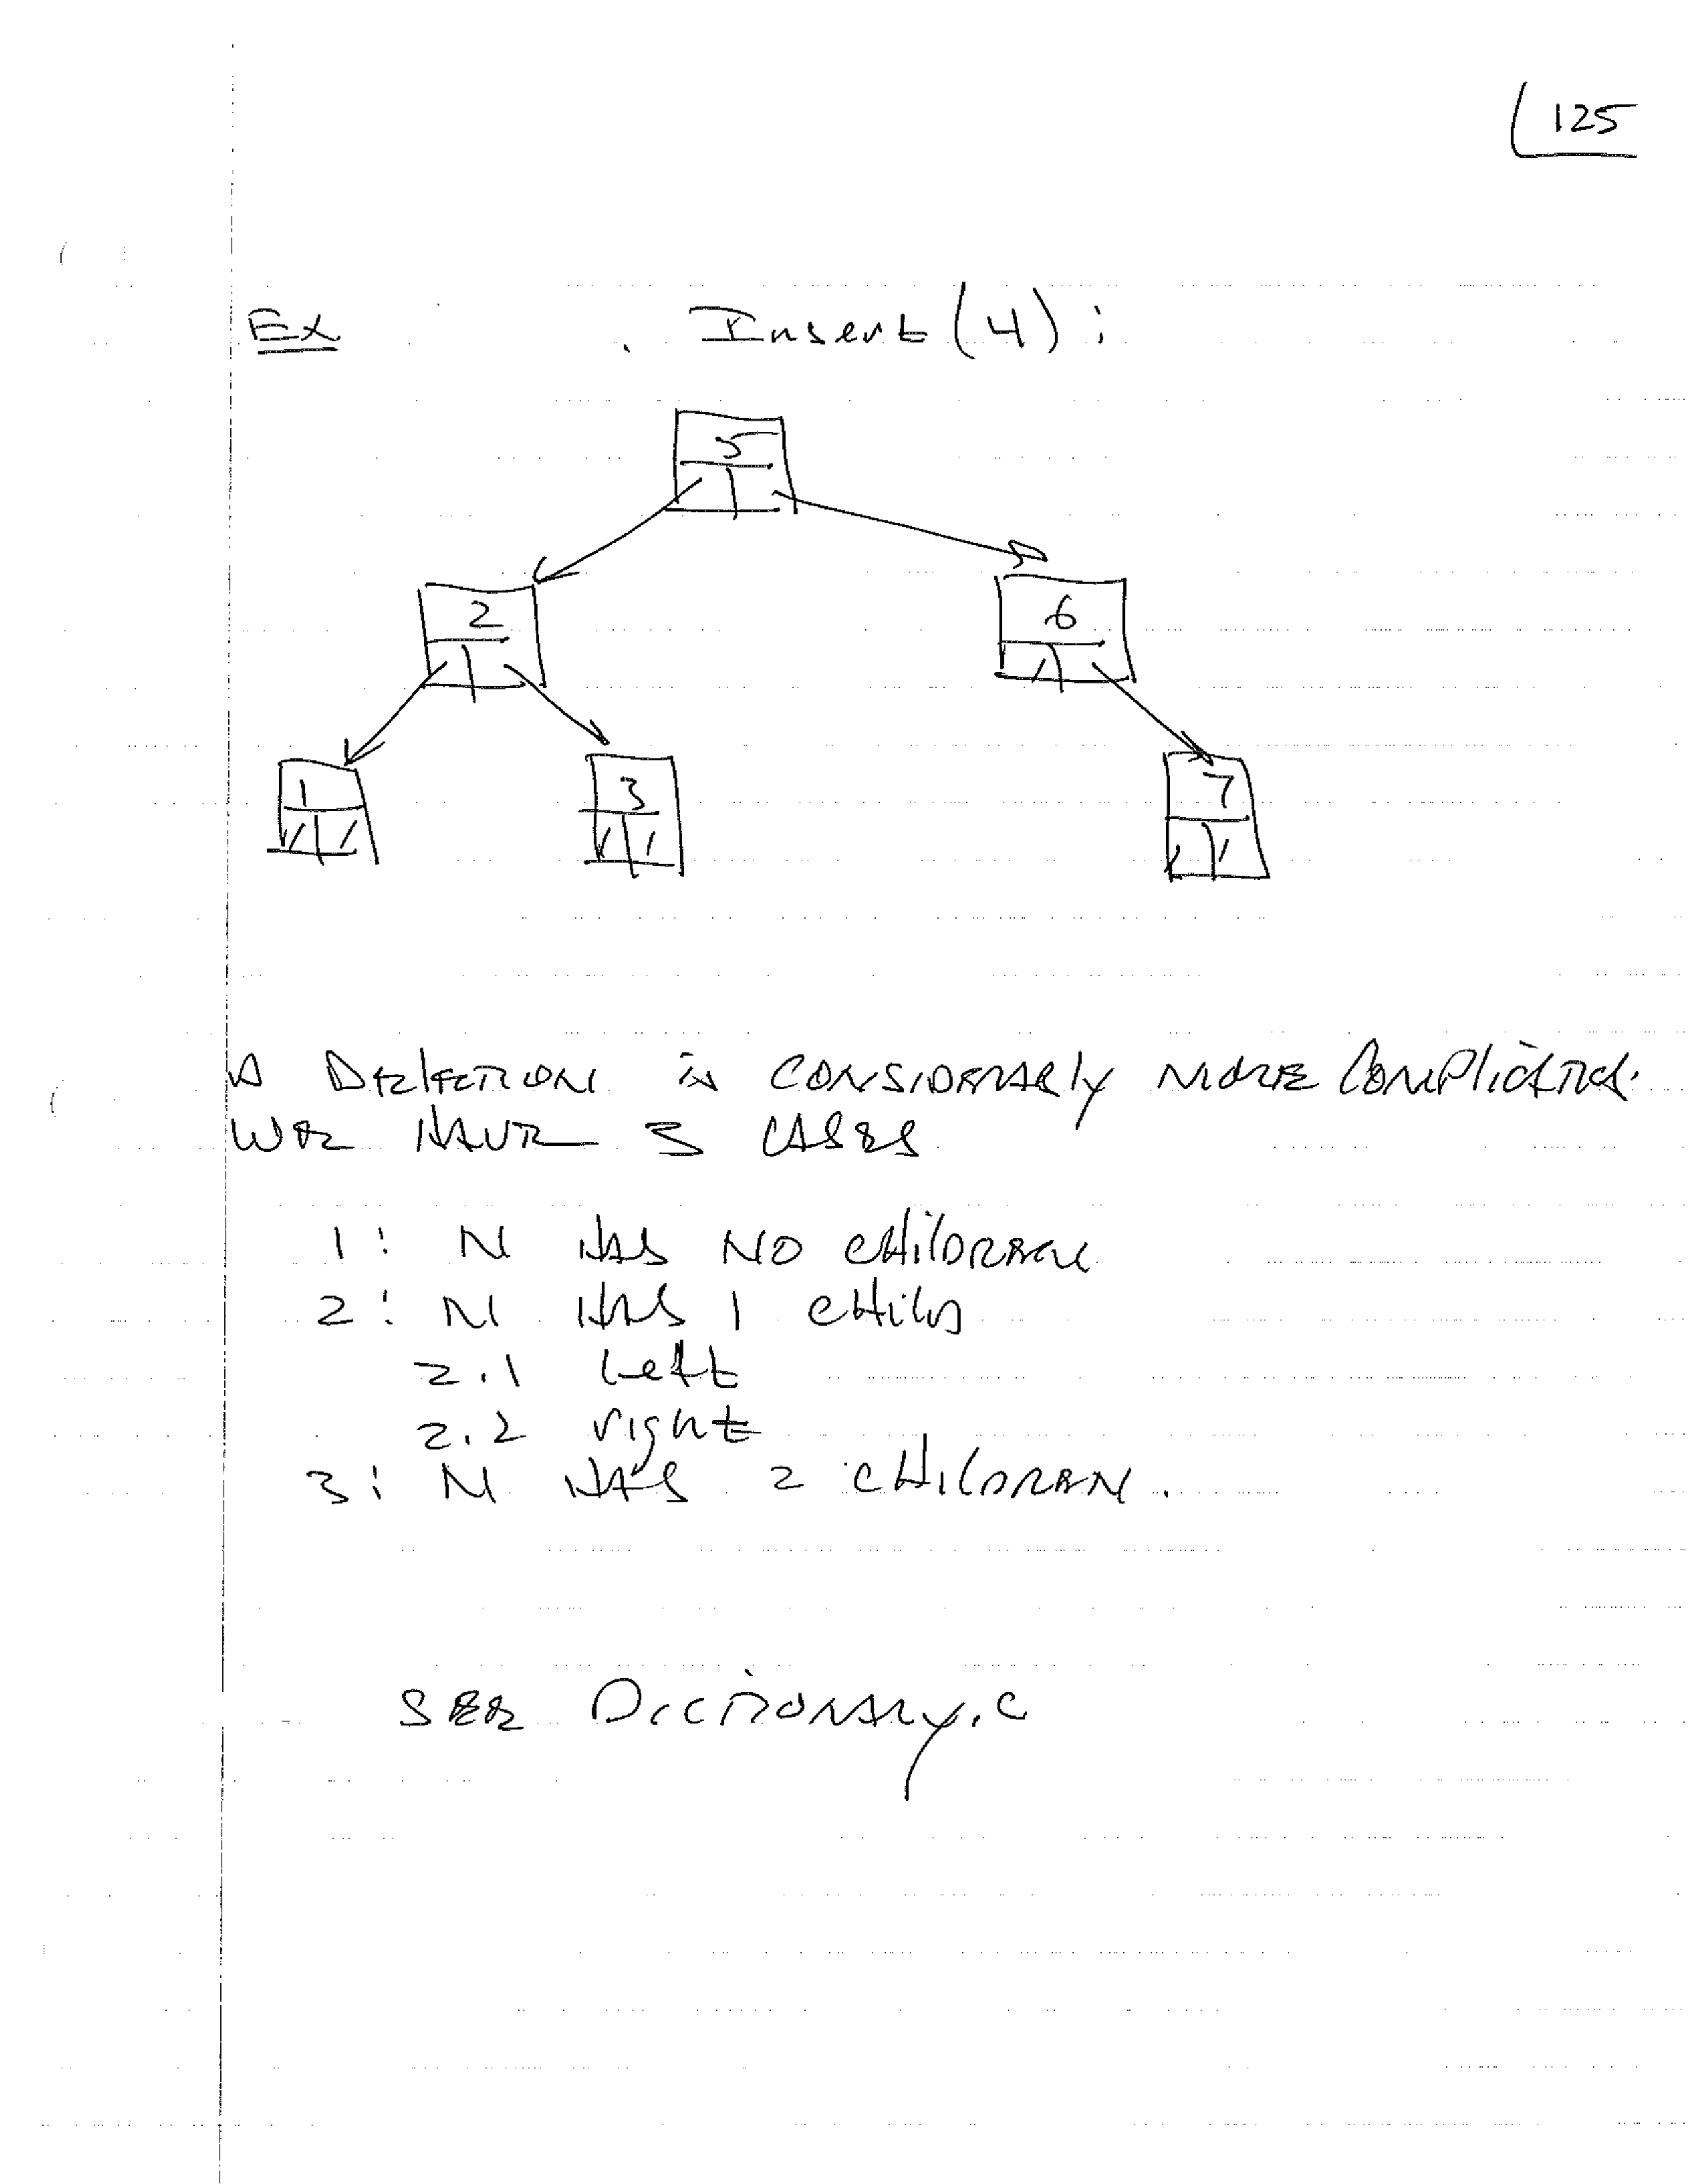 125
Ex Insert(4):
5
2 6
1 3 7
A Deletion is considerably more complicated.
We have 3 cases
1: N has no children
2: N has 1 child
2.1 left
2.2 right
3: N has 2 children.
See Dictionary.c